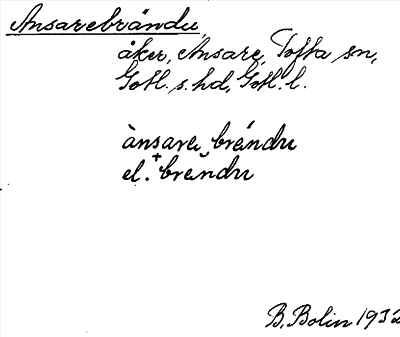 Ansarebrändu,
åker, Ansare, Tofta sn,
Gotl. s. hd, Gotl. l.
ànsare bréndu
el. brendu
B. Bolin 1932